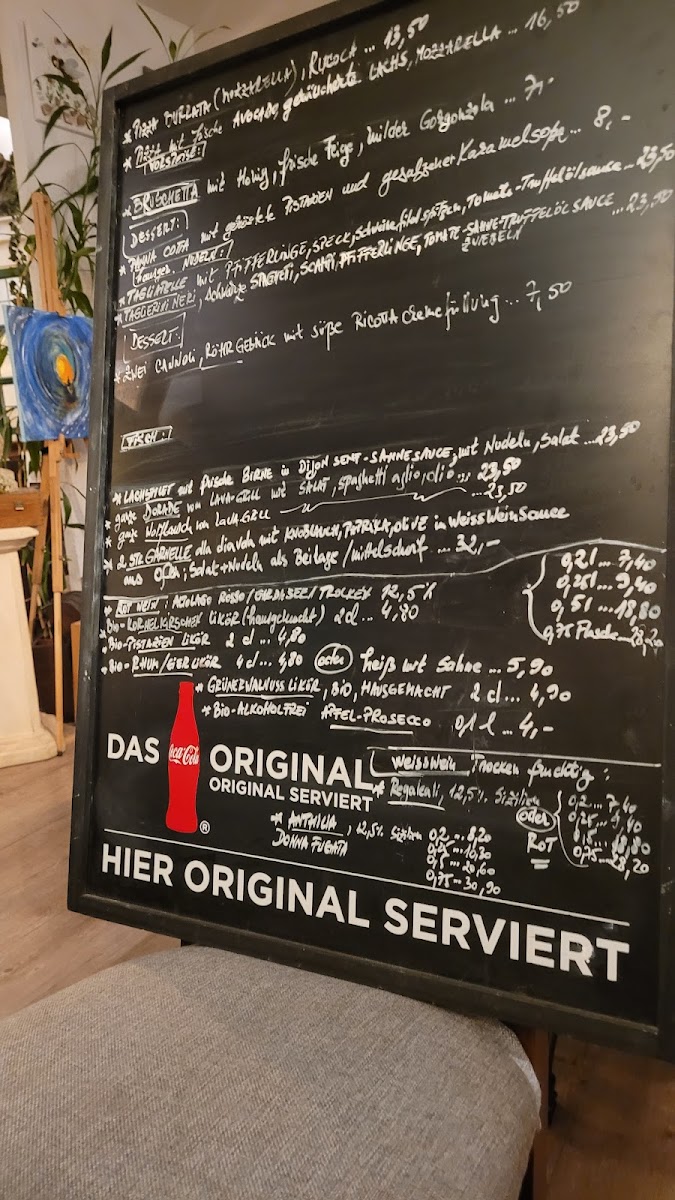 * Pizza BURRATA (MOZZARELLA), RUCOLA ... 13,50
* Pizza mit frische AVOCADO, geräucherte LACHS, MOZZARELLA ... 16,50
VORSPEISE:
* BRUSCHETTA mit Honig, frische Feige, milder Gorgonzola ... 7,-
DESSERT:
* PANNA COTTA mit geröstete PISTAZIEN und gesalzener Karamelsoße ... 8,-
NUDELN:
* TAGLIATELLE mit PFIFFERLINGE, SPECK, Schweinefiletspitzen, Tomate-Trüffelölsauce ... 23,50
* TAGLIERINI NERI, schwarze SPAGHETTI, SCAMPI, PFIFFERLINGE, TOMATE-SAHNE-TRUFFELÖLSAUCE ... 23,50
ZWIEBELN
DESSERT:
* ZWEI CANNOLI, RÖHRGEBÄCK mit süße RICOTTA Cremefüllung ... 7,50
FISCH:
* LACHSFILET mit frische BIRNE in DIJON SENF-SAHNESAUCE, mit Nudeln, Salat ... 23,50
* ganze DORADE von LAVA-GRILL mit SALAT, spaghetti aglio, olio ... 23,50
* ganze Wolfbarsch von LAVA-GRILL ... 23,50
* 2 STK GARNELLE alla diavola mit KNOBLAUCH, PAPRIKA, OLIVE in WeissWeinSauce
aus Ofen; Salat + Nudeln als Beilage / mittelscharf ... 32,-
* ROT WEIN: ROSSO / TROCKEN 12,5%
0,2 l ... 7,40
0,25 l ... 9,40
0,5 l ... 18,80
0,75 Flasche ... 28,20
* BIO-KORNELKIRSCHEN LIKÖR (hausgemacht) 2 cl ... 4,80
* BIO-PISTAZIEN LIKÖR 2 cl ... 4,80
* BIO-RHUM/EIERLIKÖR 4 cl ... 4,80 oder heiß mit Sahne ... 5,90
* GRÜNEWALNUSS LIKÖR, BIO, HAUSGEMACHT 2 cl ... 4,90
* BIO-ALKOHOLFREI APFEL-PROSECCO 0,1 l ... 4,-
DAS Coca-Cola ORIGINAL
ORIGINAL SERVIERT
®
WEISSWEIN, Trocken fruchtig:
* Regaleali, 12,5% Sizilien
oder
ROT
0,2 ... 7,40
0,25 ... 9,40
0,5 ... 18,80
0,75 ... 28,20
* ANTHILIA, 12,5% Sizilien
DONNA FUGATA
0,2 ... 8,20
0,25 ... 10,30
0,5 ... 20,60
0,75 ... 30,90
HIER ORIGINAL SERVIERT